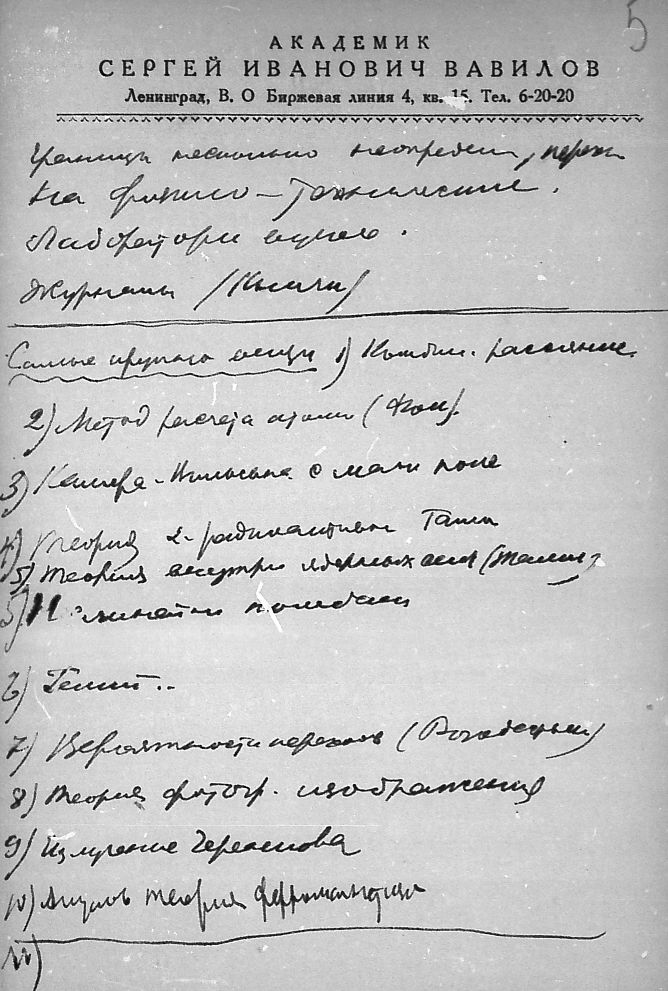 5
АКАДЕМИК
СЕРГЕЙ ИВАНОВИЧ ВАВИЛОВ
Ленинград, В. О Биржевая линия 4, кв. 15. Тел. 6-20-20
Границы несколько неопредел,
на физико-технические.
Лаборатории
Журналы
Самые крупные вещи 1) Комбин. рассеяние
2) Метод расчета атома (Фок).
3) Камера Вильсона с магн поле
4) Теория α-радиоактивн Гамов
5) Теория внутри ядерных сил (Тамм)
5) Нелинейн колебан
6) Гелий..
7) Вероятности переходов (Рождественский)
8) Теория фотогр. изображения
9) Излучение Черенкова
10) теория ферромагнетизма
11)